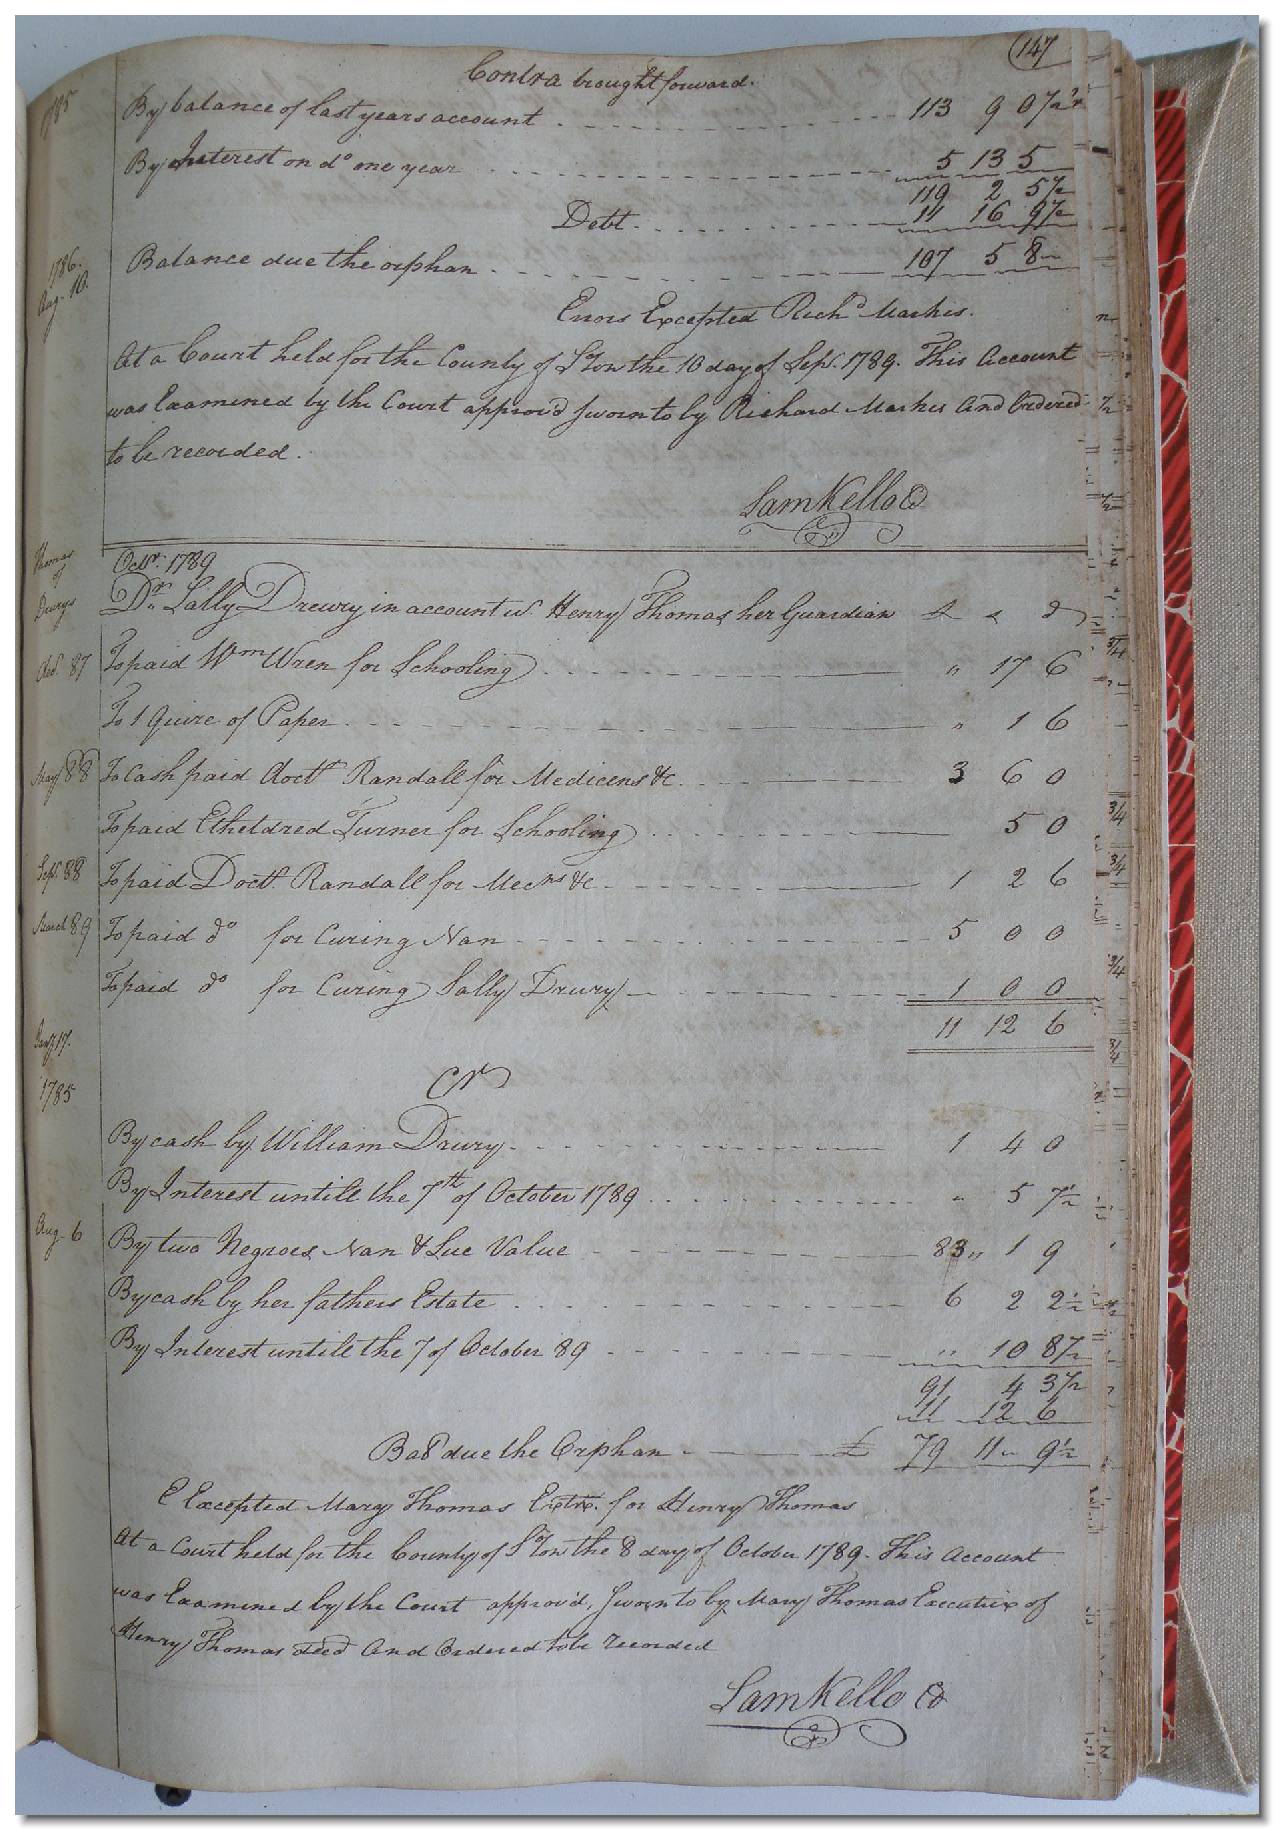 147
Contra brought forward.
1785 By balance of last years account 113 9 0 1/2
By Interest on do one year 5 13 5
119 2 5 1/2
Debt 11 16 9 1/2
1786. Aug. 10. Balance due the orphan 107 5 8
Errors Excepted Richd Markes.
At a Court held for the County of So ton the 10 day of Sepr. 1789. This Account
was Examined by the Court approv'd sworn to by Richard Markes And Ordered
to be recorded.
Sam Kello
Thomas
of
Drurys
Octr. 1789
Dr. Sally Drewry in account wt Henry Thomas her Guardian £ s d
Octr. 87 To paid Wm Wren for Schooling " 17 6
To 1 Quire of Paper " 1 6
May 88 To Cash paid Doctr Randall for Medicens &c. 3 6 0
To paid Etheldred Turner for Schooling 5 0
Sepr. 88 To paid Doctr. Randall for Mecns &c 1 2 6
March 89 To paid do for Curing Nan 5 0 0
To paid do for Curing Sally Drury 1 0 0
11 12 6
Jany 17.
1785
Cr
By cash by William Drury 1 4 0
By Interest untill the 7th of October 1789 " 5 7 1/2
Aug. 6 By two Negroes Nan & Sue Value 83 " 1 9
By cash by her fathers Estate 6 2 2 1/2
By Interest untill the 7 of October 89 " 10 8 1/2
91 4 3 1/2
11 12 6
Bal due the Orphan £ 79 11 9 1/2
E Excepted Mary Thomas Extrx. for Henry Thomas
At a Court held for the County of So ton the 8 day of October 1789. This Account
was Examined by the Court approv'd, Sworn to by Mary Thomas Executrix of
Henry Thomas decd And Ordered to be recorded
Sam Kello